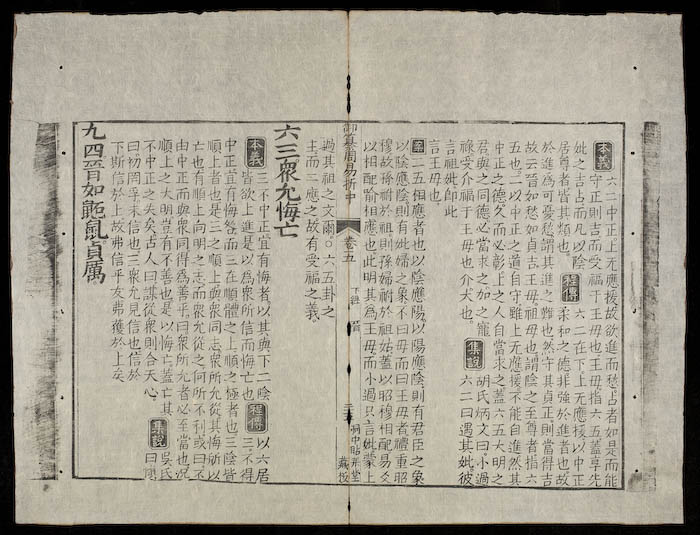 本義 六二中正上无應援故欲進而愁占者如是而能
守正則吉而受福于王母也王母指六五蓋享先
妣之吉占而凡以陰
居尊者皆其類也。
程傳 六二在下上无應援以中正
柔和之德非強於進者也故
於進為可憂愁謂其進之難也然守其貞正則當得吉
故云晉如愁如貞吉王母祖母也謂陰之至尊者指六
五也。二以中正之道自守雖上无應援不能自進然其
中正之德久而必彰上之人自當求之蓋六五大明之
君與之同德必當求之加之寵
祿受介福于王母也介大也。
集說 胡氏炳文曰小過
六二曰遇其妣彼
言祖妣即此
言王母也
案 二五相應者也以陰應陽以陽應陰則有君臣之象
以陰應陰則有妣婦之象不曰母而曰王母者禮重昭
穆故孫祔於祖則孫婦祔於祖姑蓋以昭穆相配易爻
以相配喻相應也此明其為王母而小過只言妣蒙上
御纂周易折中
卷五
下經
藏板
過其祖之文爾。○六五卦之
主而二應之故有受福之義
六三衆允悔亡
本義 三不中正宜有悔者以其與下二陰
皆欲上進是以為衆所信而悔亡也
程傳 以六居
三不得
中正宜有悔咎而三在順體之上順之極者也三陰皆
順上者也是三之順上與衆同志衆所允從其悔所以
亡也有順上向明之志而衆允從之何所不利或曰不
由中正而與衆同得為善乎曰衆所允者必至當也況
順上之大明豈有不善也是以悔亡蓋亡其
不中正之失矣古人曰謀從衆則合天心
集說 吳氏
曰慎
曰初罔孚未信也三衆允見信也信於
下斯信於上故弗信乎友弗獲於上矣
九四晉如鼫鼠貞厲